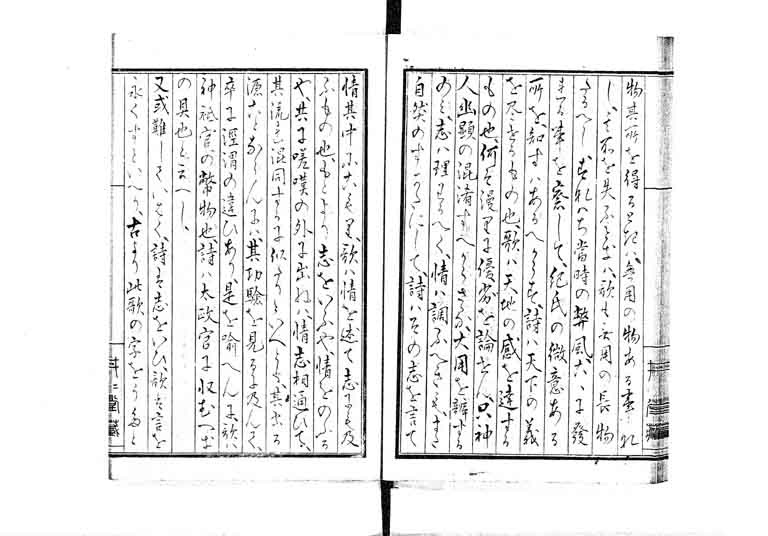 物其所を得るときは、無用の物ある事なれ
し、其所を失ふときは、歌も無用の長物
なるへし、されは当時の弊風大に発
する事を察して、紀氏の微意ある
所を知すはあるへからす、詩は天下の義
を尽せるもの也、歌は天地の感を達する
もの也、何そ漫りに優劣を論せん、只神
人幽顕の混淆すへからさるか、大用を辨する
のみ、志は理すへく、情は調ふへき
自然のすかたにして、詩は其の志を言て
情其中にこもり、歌は情を述て志了り及
ふもの也、もとより志をいふや、情をのふる
や、共に嗟嘆の外に出ねは、情志相通ひて、
其流を混同するに似たりといへとも、其出る
源ことならんには、其功験を見るに及んて、
卒に涇渭の違ひあり、是を喩へんに、歌は
神祇官の幣物也、詩は太政官に収むへき
の具也と云へし、
又或難していはく、詩は志をいひ、歌は言を
永くすといへり、古より此歌の字をうたと